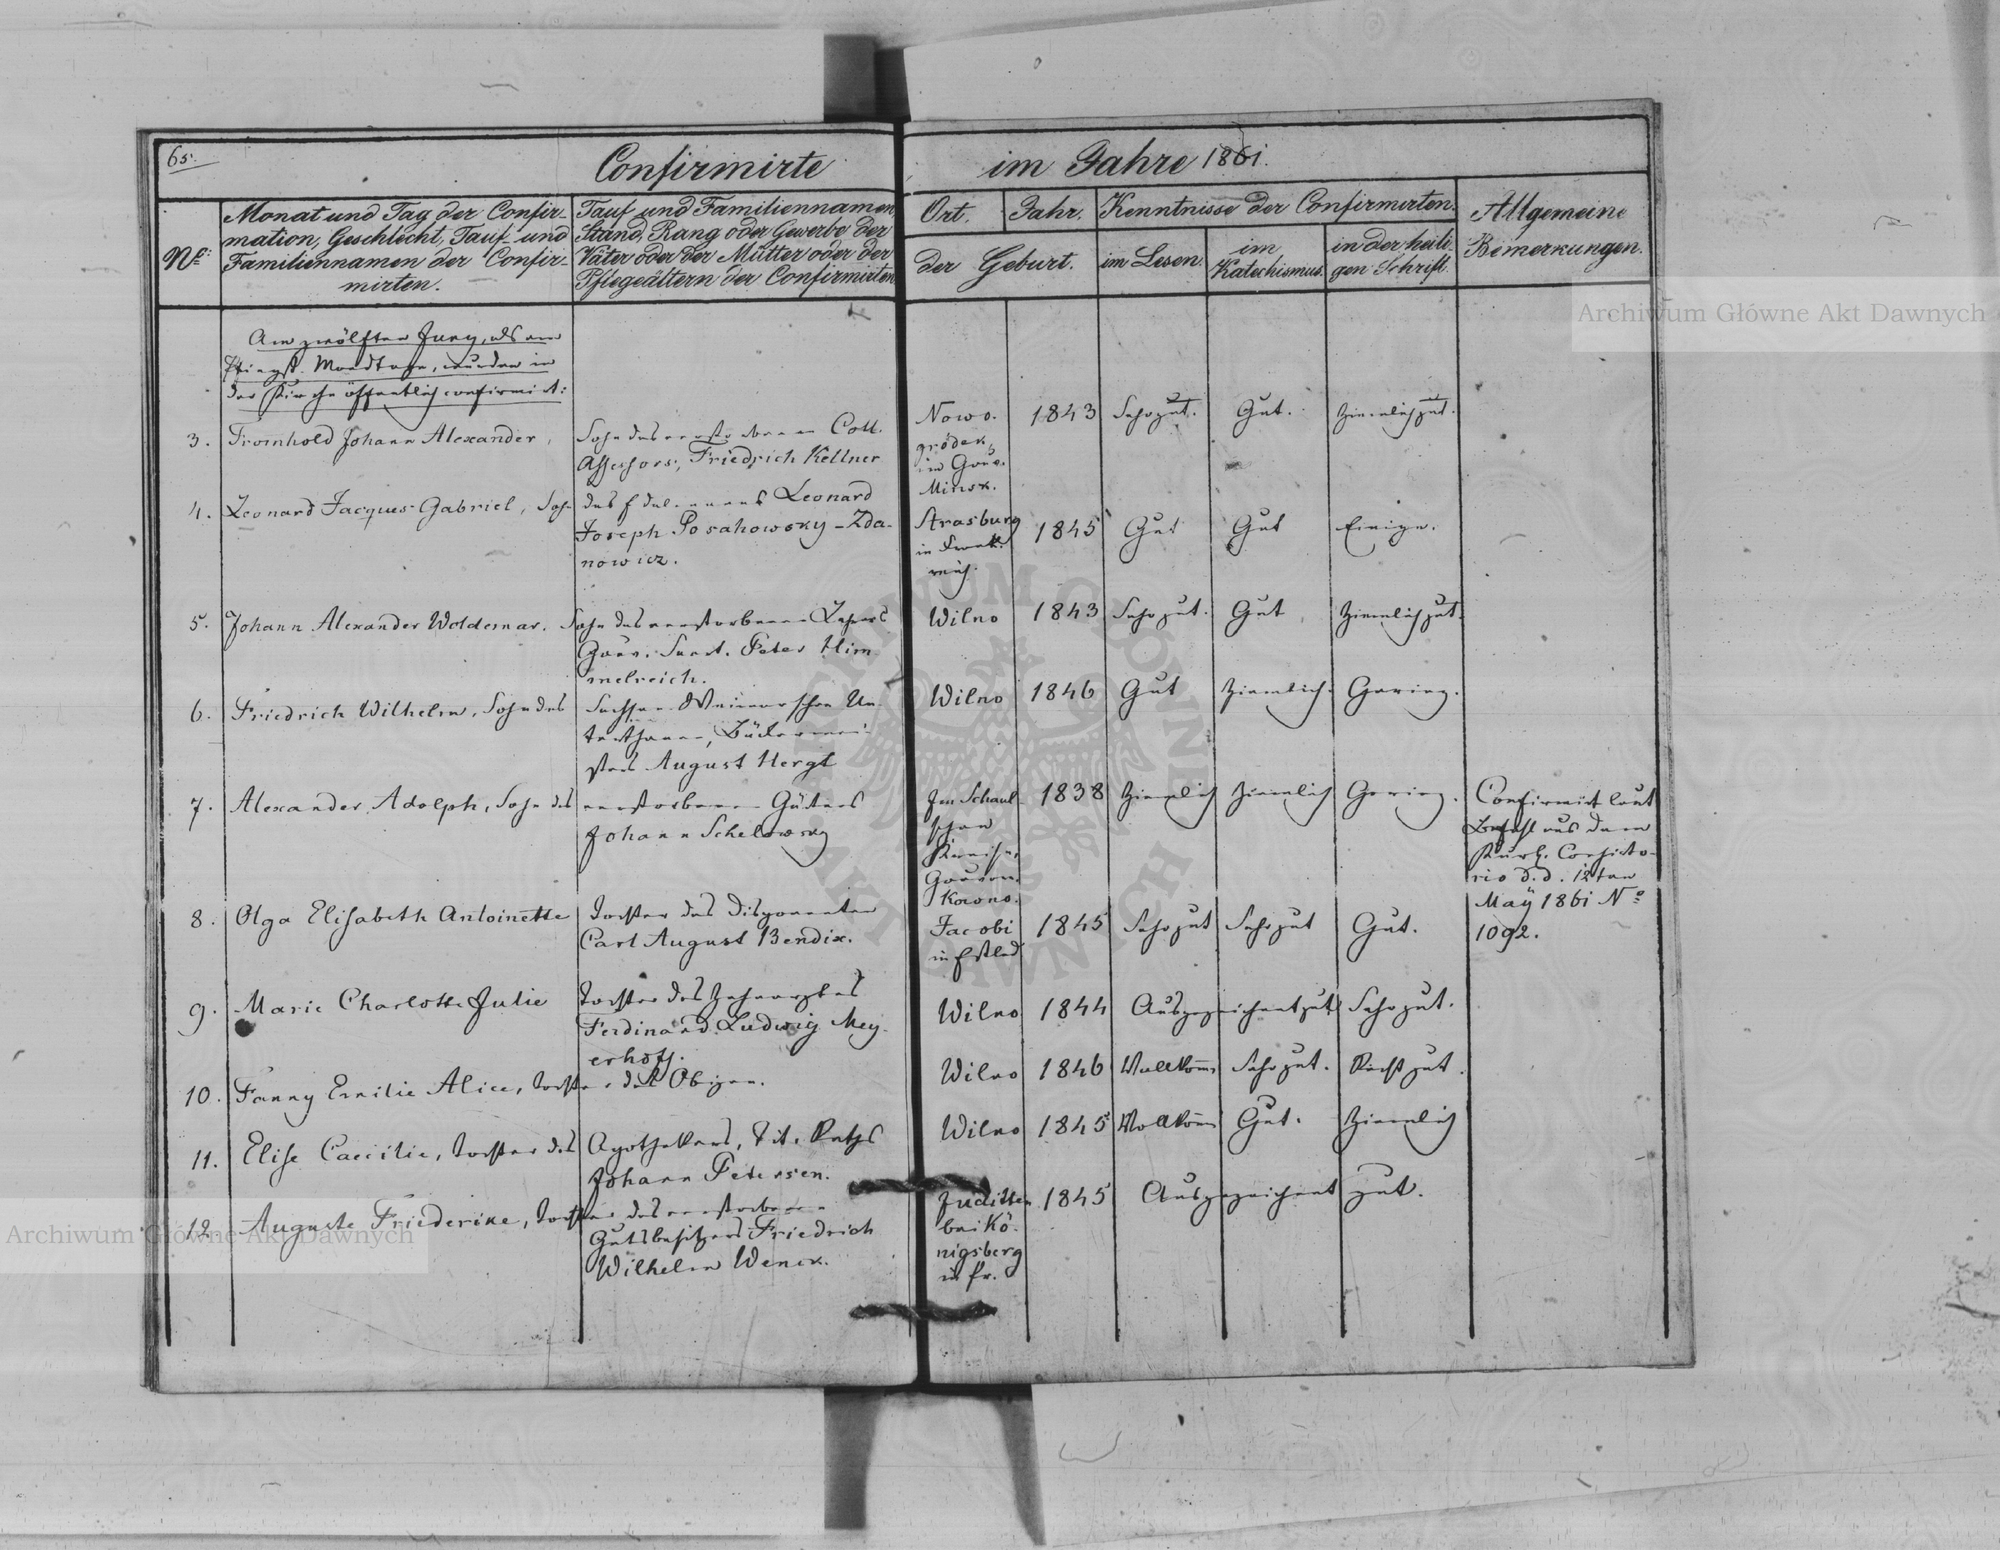 65.
Confirmirte im Jahre 1861.
No.
Monat und Tag der Confir-
mation, Geschlecht, Tauf- und
Familiennamen der Confir-
mirten.
Tauf und Familiennamen,
Stand, Rang oder Gewerbe der
Väter oder der Mütter oder der
Pflegeältern der Confirmirten
Ort. Jahr.
der Geburt.
Kenntnisse der Confirmirten.
im Lesen.
im
Katechismus.
in der heili-
gen Schrift.
Allgemeine
Bemerkungen.
Am zwölften Juny, als am
Pfingst-Mondtage, wurden in
der Kirche öffentlich confirmirt:
3. Fromhold Johann Alexander,
Sohn des verstorbenen Coll.
Assessors, Friedrich Kellner
Nowo-
grödek,
im Gouv.
Minsk.
1843 Sehr gut. Gut. Ziemlich gut.
4. Leonard Jacques Gabriel, Sohn
des Edelmanns Leonard
Joseph Posahowsky-Zda-
nowicz.
Strasburg
in Frank-
reich.
1845 Gut Gut Einige.
5. Johann Alexander Woldemar.
Sohn des verstorbenen Lehrers
Gouv. Secret. Peter Him-
melreich.
Wilno 1843 Sehr gut. Gut, Ziemlich gut.
6. Friedrich Wilhelm, Sohn des
Sachsen-Weimarschen Un-
terthanen, Bäckermei-
sters August Hergt
Wilno 1846 Gut Ziemlich. Gering.
7. Alexander Adolph, Sohn des
verstorbenen Gütners
Johann Schelowsky
Im Schaul-
schen
Kreise,
Gouvern.
Kowno.
1838 Ziemlich Ziemlich Gering.
Confirmirt laut
Befehl aus dem
Kurl. Consisto-
rio d.d. 12ten
May 1861 No
1092.
8. Olga Elisabeth Antoinette
Tochter des Disponenten
Carl August Bendix.
Jacobi
in Estland
1845 Sehr gut Sehr gut Gut.
9. Marie Charlotte Julie
Tochter des Zahnarztes
Ferdinand Ludwig Mey-
erhoff.
Wilno 1844 Ausgezeichnet gut Sehr gut.
10. Fanny Emilie Alice, Tochter des Obigen.
Wilno 1846 Vollkom̄n Sehr gut. Recht gut.
11. Elise Caecilie, Tochter des
Apothekers, Tit. Raths
Johann Petersen.
Wilno 1845 Vollkom̄n Gut. Ziemlich
12. Auguste Friederike, Tochter des verstorbenen
Gutsbesitzers Friedrich
Wilhelm Wenck.
Juditten
bei Kö-
nigsberg
in Pr.
1845 Ausgezeichnet gut.
Archiwum Główne Akt Dawnych
Archiwum Główne Akt Dawnych
ARCHIWUM GŁÓWNE AKT DAWNYCH